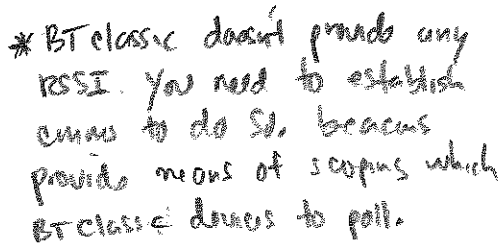 * BTclassic doesn't provide any
RSSI. You need to establish
cnxns to do so. beacons
provide means of scoping which
BTclassic devices to poll.